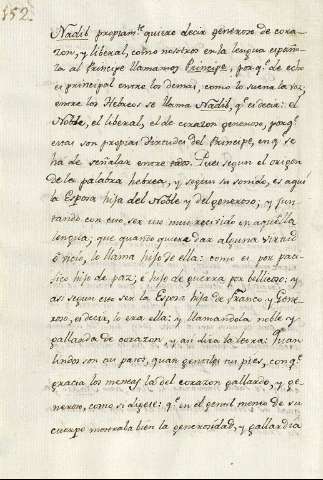 152.
Nadib propiam.te quiere decir generoso de cora-
zon, y liberal, como nosotros en la lengua españo-
la al Principe llamamos Principe, porq.e de echo
es principal entre los demas, como lo suena la voz,
entre los Hebreos se llama Nadib, q.e es decir: el
Noble, el liberal, el de corazon generoso, porq.e
estas son propias Virtudes del Principe, en q.e se
ha de señalar entre todos. Pues segun el origen
de la palabra hebrea, y segun su sonido, es aqui
la Esposa hija del Noble y del generoso; y jun-
tando con eso, ser uso mui recivido en aquella
lengua, que quando quiere dar alguna virtud
ó vicio, lo llama hijo de ella: como es por paci-
fico hijo de paz, é hijo de guerra por bellicoso: y
asi segun eso ser la Esposa hija de Franco y Gene-
roso, es decir, lo era ella: y llamandola noble y
gallarda de corazon, y asi dira la letra: Quan
lindos son tus pasos, quan gentiles tus pies, con q.e
gracia los meneas la del corazon gallardo, y ge-
neroso, como si dijese: q.e en el gentil meneo de su
cuerpo mostraba bien la generosidad, y gallardia